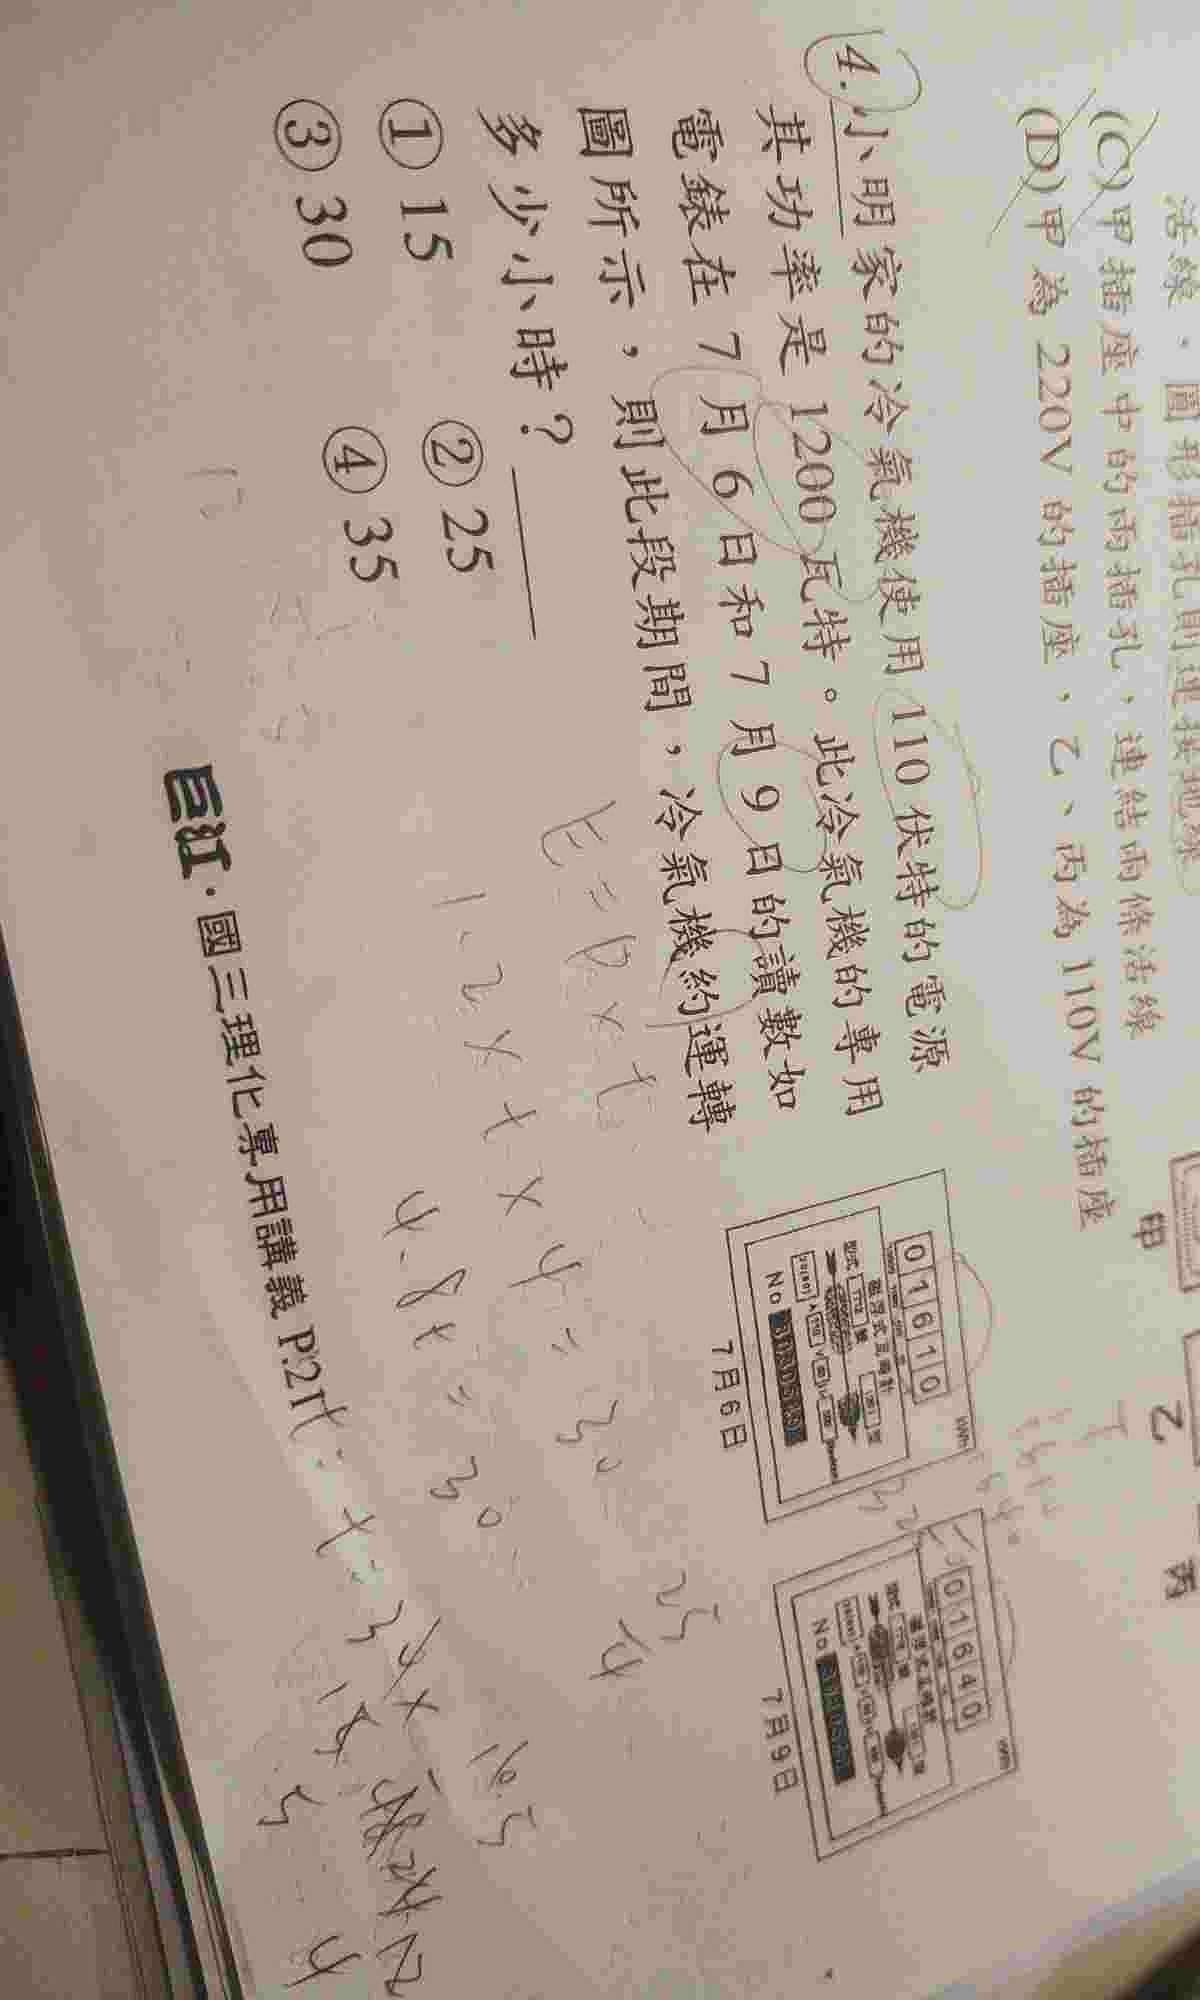 活線,圓形插孔則連接地線
(C)甲插座中的兩插孔,連結兩條活線
(D)甲為 220V 的插座,乙、丙為 110V 的插座
甲
乙
丙
4.小明家的冷氣機使用 110 伏特的電源
其功率是 1200 瓦特。此冷氣機的專用
電錶在 7 月 6 日和 7 月 9 日的讀數如
圖所示,則此段期間,冷氣機約運轉
多少小時?
① 15 ② 25
③ 30 ④ 35
01610
kWh
No
7月6日
01640
kWh
No
7月9日
E=P×t
1.2×t×4=30
4.8t=30
25
4
巨江·國三理化專用講義 P.21